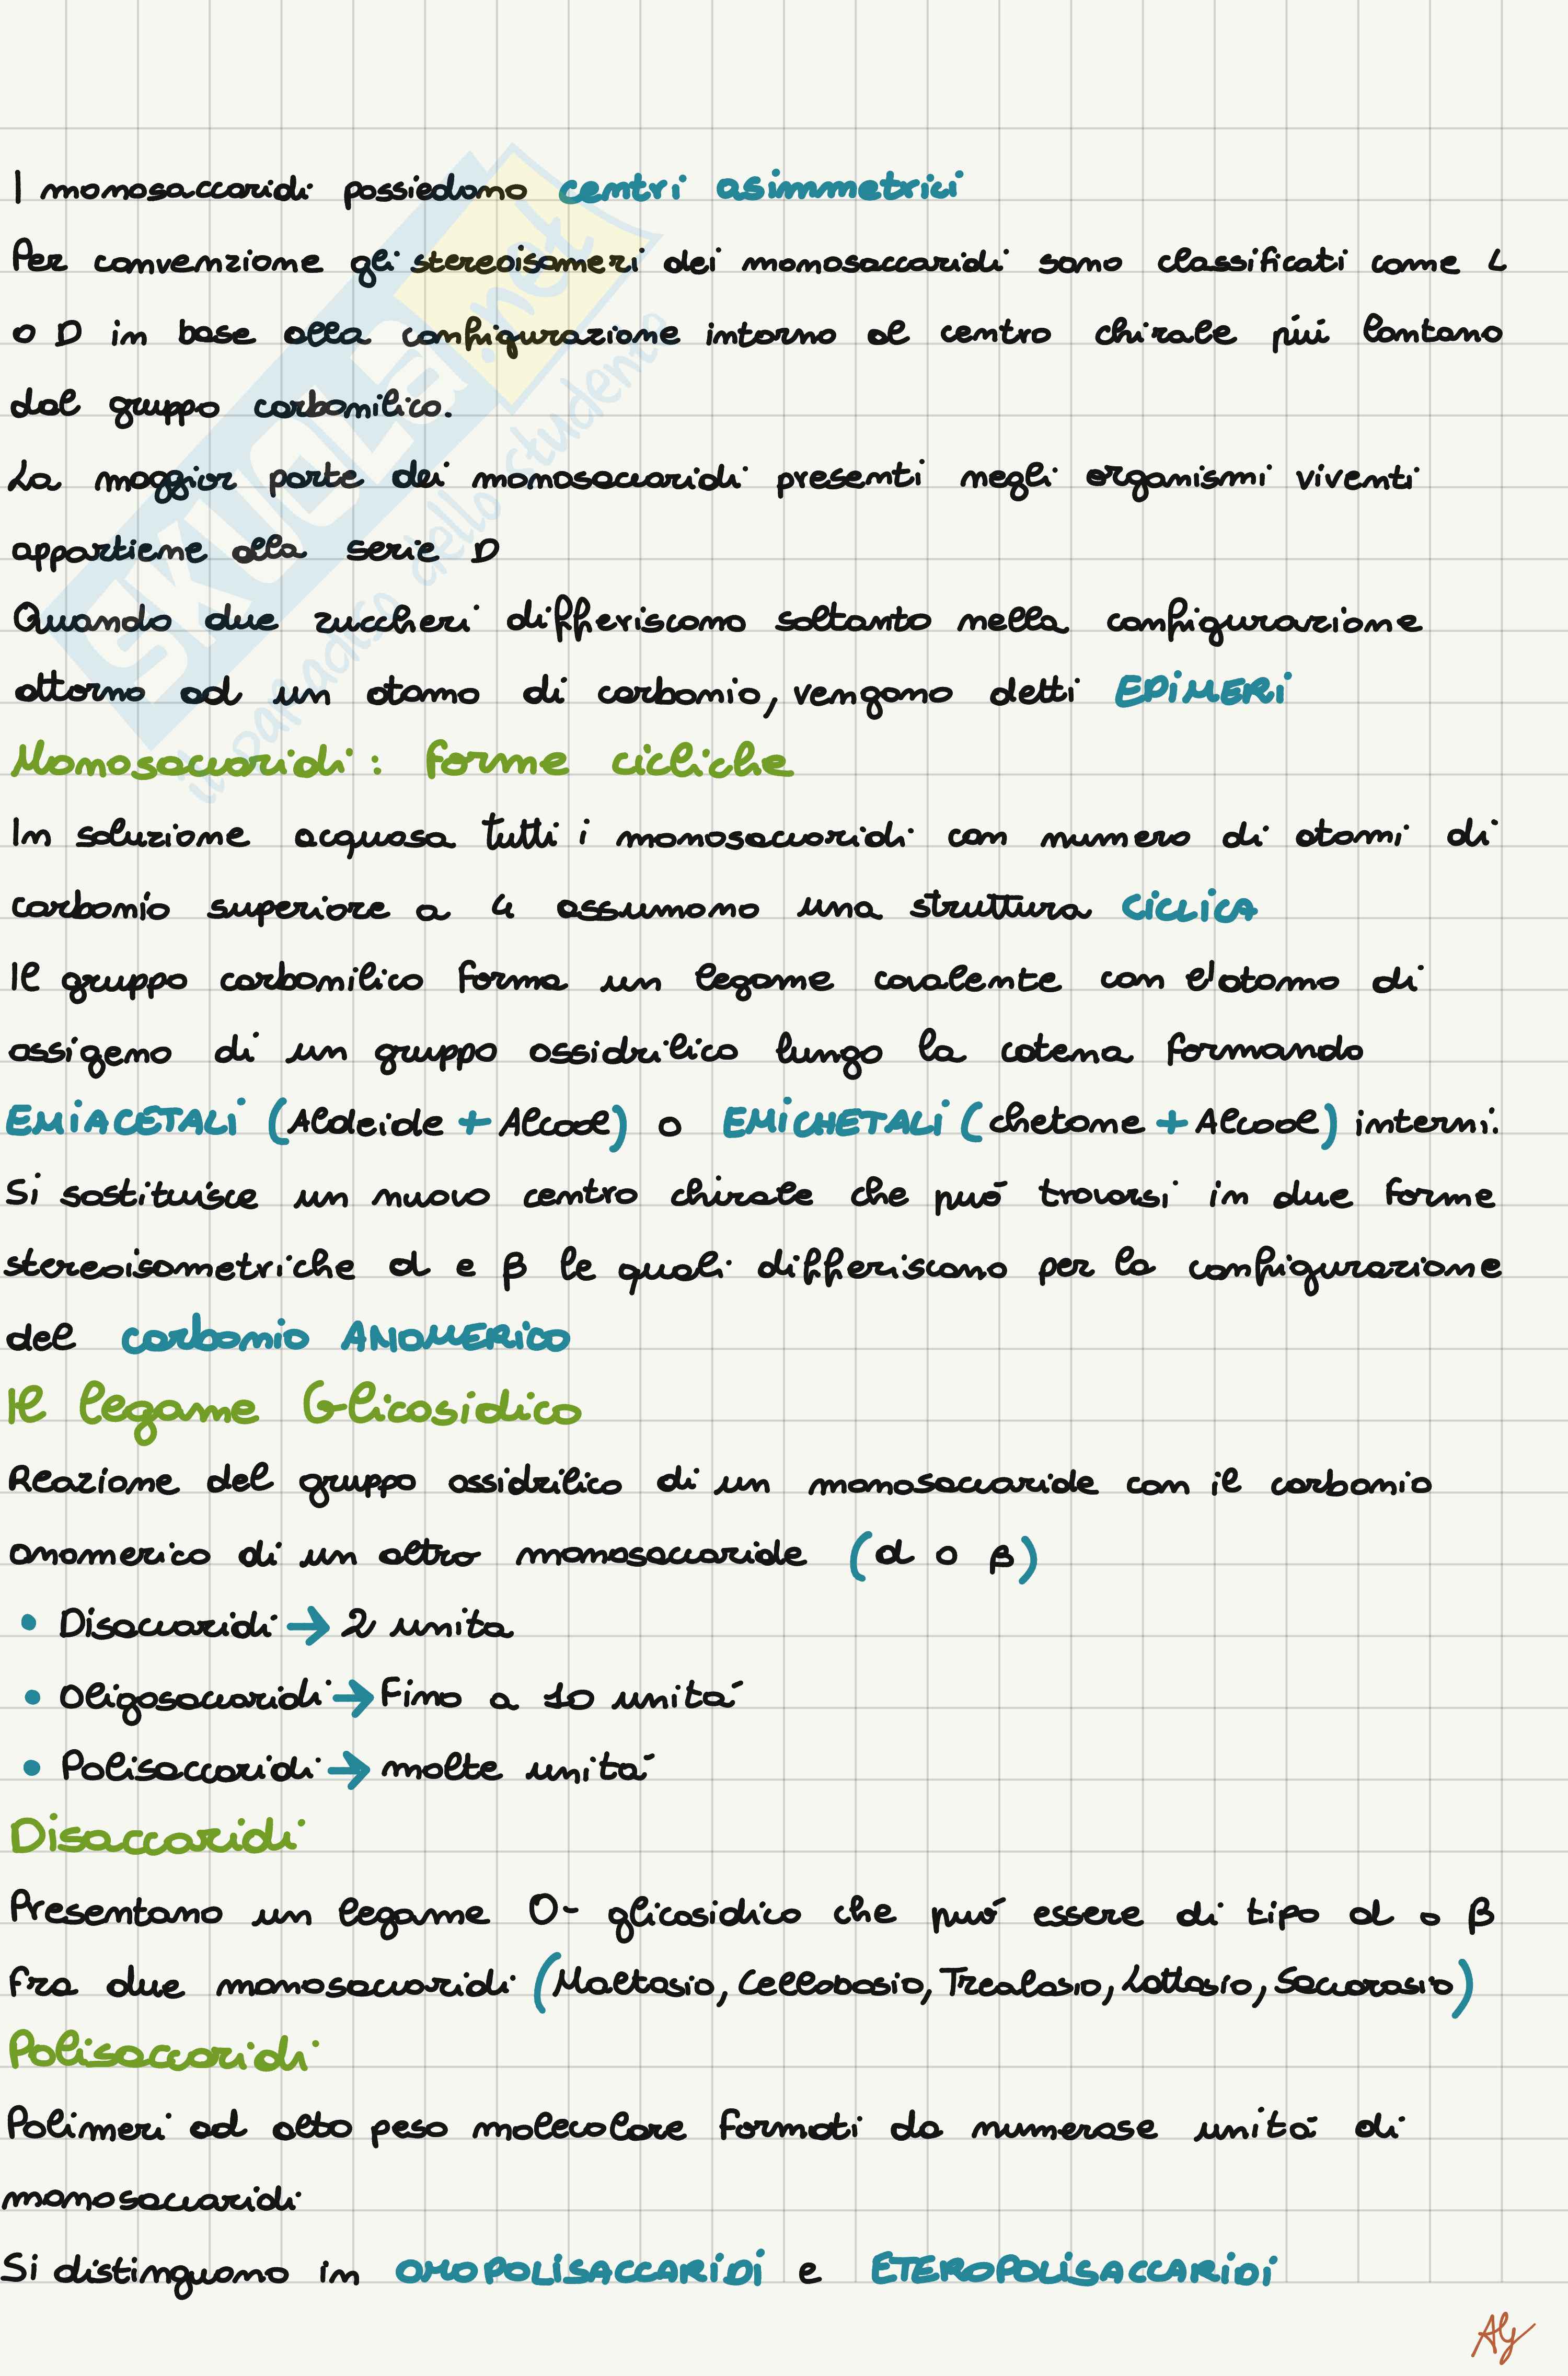 I monosaccaridi possiedono centri asimmetrici
Per convenzione gli stereoisomeri dei monosaccaridi sono classificati come L
o D in base alla configurazione intorno al centro chirale più lontano
dal gruppo carbonilico.
La maggior parte dei monosaccaridi presenti negli organismi viventi
appartiene alla serie D
Quando due zuccheri differiscono soltanto nella configurazione
attorno ad un atomo di carbonio, vengono detti EPIMERI
Monosaccaridi: forme cicliche
In soluzione acquosa tutti i monosaccaridi con numero di atomi di
carbonio superiore a 4 assumono una struttura CICLICA
Il gruppo carbonilico forma un legame covalente con l'atomo di
ossigeno di un gruppo ossidrilico lungo la catena formando
EMIACETALI (Aldeide + Alcool) o EMICHETALI (chetone + Alcool) interni.
Si sostituisce un nuovo centro chirale che può trovarsi in due forme
stereoisometriche α e β le quali differiscono per la configurazione
del carbonio ANOMERICO
Il legame Glicosidico
Reazione del gruppo ossidrilico di un monosaccaride con il carbonio
anomerico di un altro monosaccaride (α o β)
• Disaccaridi → 2 unita
• Oligosaccaridi → Fino a 10 unità
• Polisaccaridi → molte unità
Disaccaridi
Presentano un legame O- glicosidico che può essere di tipo α o β
fra due monosaccaridi (Maltosio, Cellobosio, Trealosio, Lattosio, Saccarosio)
Polisaccaridi
Polimeri ad alto peso molecolare formati da numerose unità di
monosaccaridi
Si distinguono in OMOPOLISACCARIDI e ETEROPOLISACCARIDI
SKUOLA.net
il paradiso dello studente